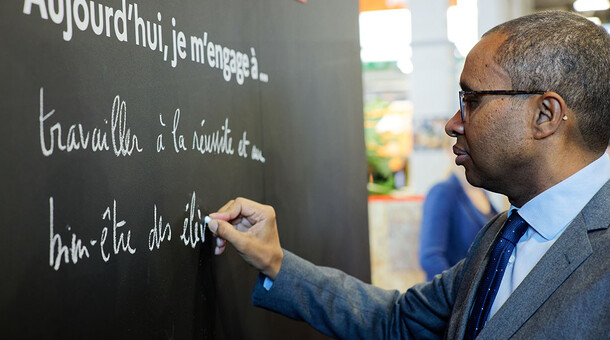 Aujourd'hui, je m'engage à...
travailler à la réussite et au
bien-être des élèv